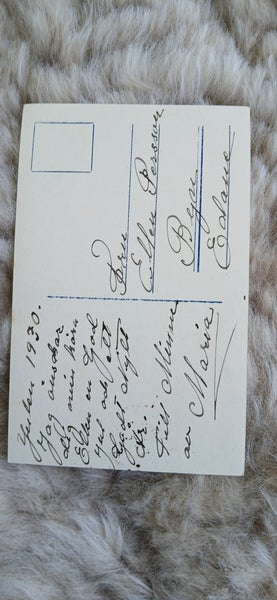 Julen 1930.
Jag önskar
Dej min kära
Ellen en God
Jul och ett
Godt Nytt
År.
Till Minne
av Maria
Fru
Ellen Persson
Byn
Edane